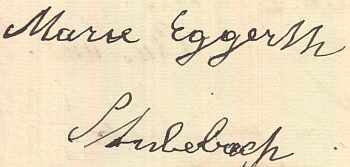 Marie Eggerth
Stubebach